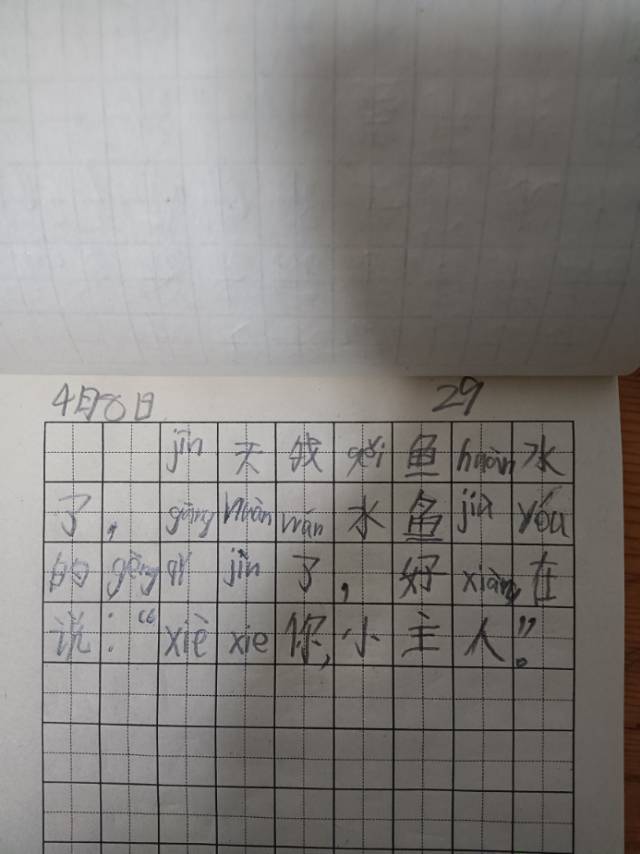 4月8日 29
jīn天我gěi鱼huàn水
了，gāng huàn wán水鱼jiù yóu
的gèng qǐ jìn了，好xiàng在
说：“xiè xie你，小主人。”